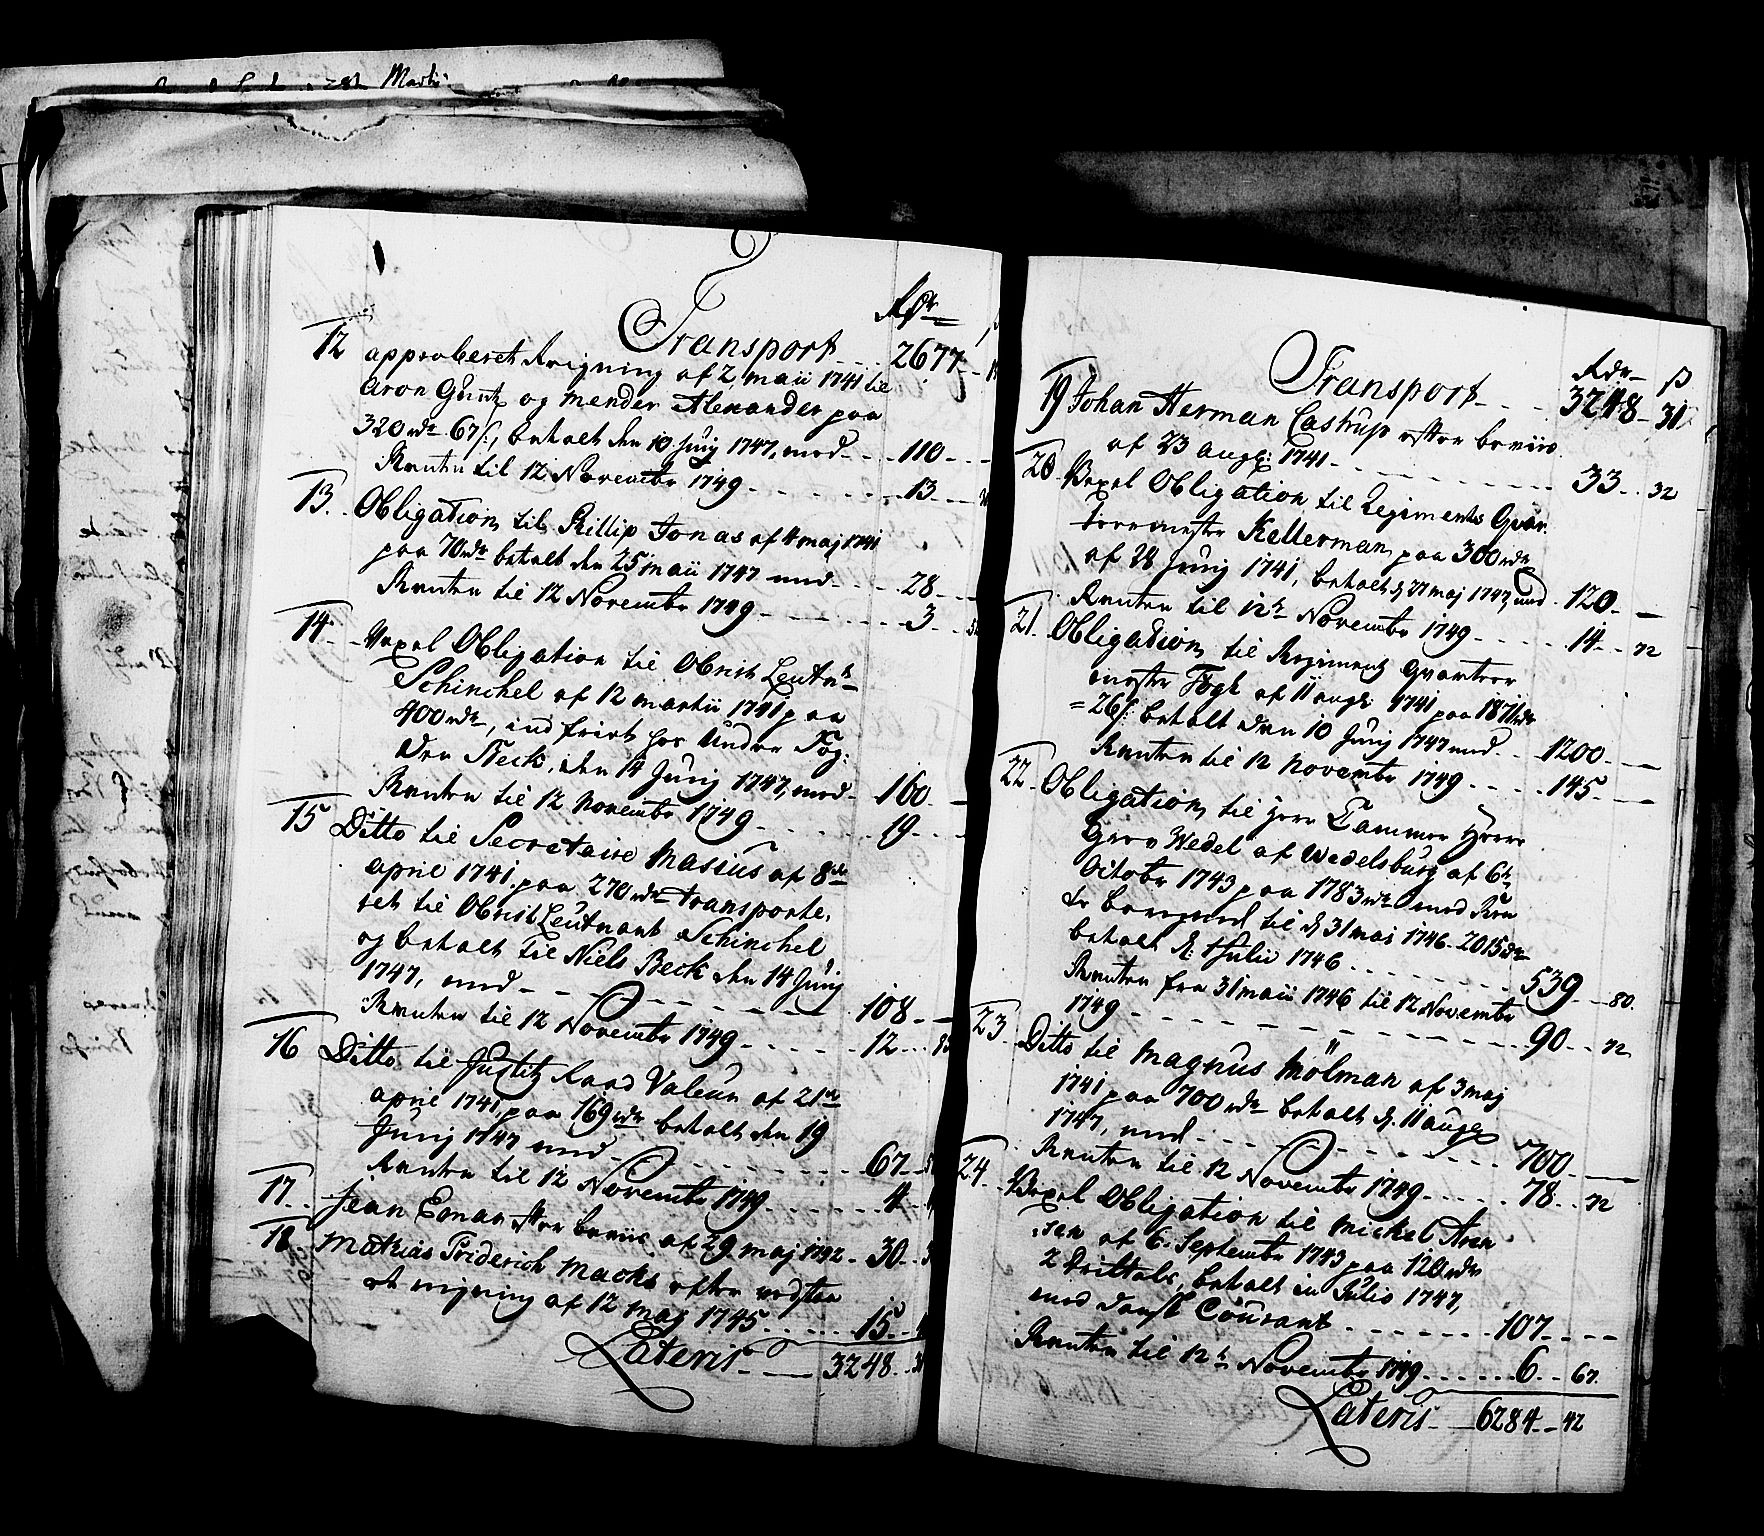 Martii
Rdr
Transport 2677
12 approberet Reigning af 2 maii 1741 til
Aron Guntz og Mender Alexander paa
320 rdr 67 ß, betalt den 10 Junij 1747, med 110
Renten til 12 Novembr 1749 13
13. Obligation til Phillip Jonas af 4 maj 1741
paa 70 rdr betalt den 25 maii 1747 med 28
Renten til 12 Novembr 1749 3
14 Vexel Obligation til Obrist Leutnt
Schinchel af 12 martii 1741 paa
400 rdr, indfriet hos
den Beck, den 14 Junij 1747, med 160
Renten til 12 Novembr 1749 19
15 Ditto til Secretaire Masius af 8de
april 1741 paa 270 rdr transporte,
ret til Obrist Leutnant Schinchel
og betalt til Niels Beck den 14 Junij
1747, med 108
Renten til 12 Novembr 1749 12
16 Ditto til Justitz Raad Valeur af 21de
april 1741 paa 169 rdr betalt den 19
Junij 1747 med 67
Renten til 12 Novembr 1749 4
17. Jean Eman efter beviis af 29 maj 1742 30
18 Mathias Friderich Macks efter
reigning af 12 maj 1745 15
Lateris 3248
Rdr ß
Transport 3248 31
19 Johan Herman Castrup efter beviis
af 23 augt: 1741 33 32
20 Vexel Obligation til Regiments Qvar
teermester Kellerman paa 300 rdr
af 28 Junij 1741, betalt d 27 maj 1747 med 120
Renten til 12t Novembr 1749 14 72
21 Obligation til Regiments Qvarteer
mester Fogh af 11 augt 1741 paa 1871 rdr
= 26 ß: betalt den 10 Junij 1747 med 1200
Renten til 12 Novembr 1749 145
22 Obligation til herr Cammer Herre
Wedel af Wedelsburg af 6t
Octobr 1743 paa 1783 rdr med Ren
te beregned til d 31 maj 1746 2015 rdr
betalt d: 1 Julii 1746 539 80
Renten fra 31 maii 1746 til 12 Novembr
1749 90 72
23. Ditto til Magnus Mölman af 3 maj
1741 paa 700 rdr betalt d. 11 aug
1747, med 700
Renten til 12 Novembr 1749 78 72
24 Vexel Obligation til Michel Aren
sen af 6. Septembr 1743 paa 120 rdr
2 Drittels, betalt in Julio 1747,
med dansk Courant 107
Renten til 12t Novembr 1749 6 67
Lateris 6284 42